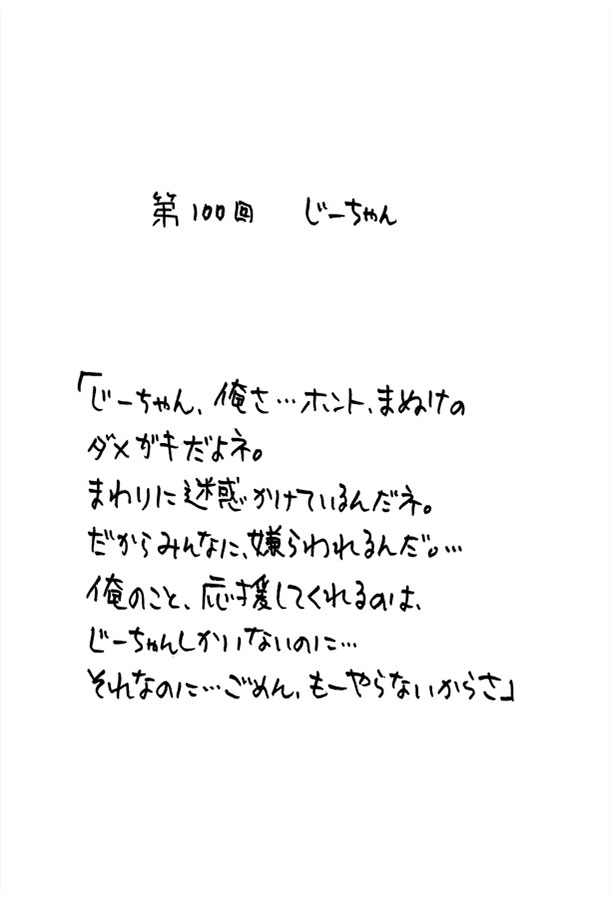 第100回 じーちゃん
「じーちゃん、俺さ…ホント、まぬけの
ダメガキだよネ。
まわりに迷惑かけているんだネ。
だからみんなに、嫌らわれるんだ。…
俺のこと、応援してくれるのは、
じーちゃんしかいないのに…
それなのに…ごめん、もーやらないからさ」